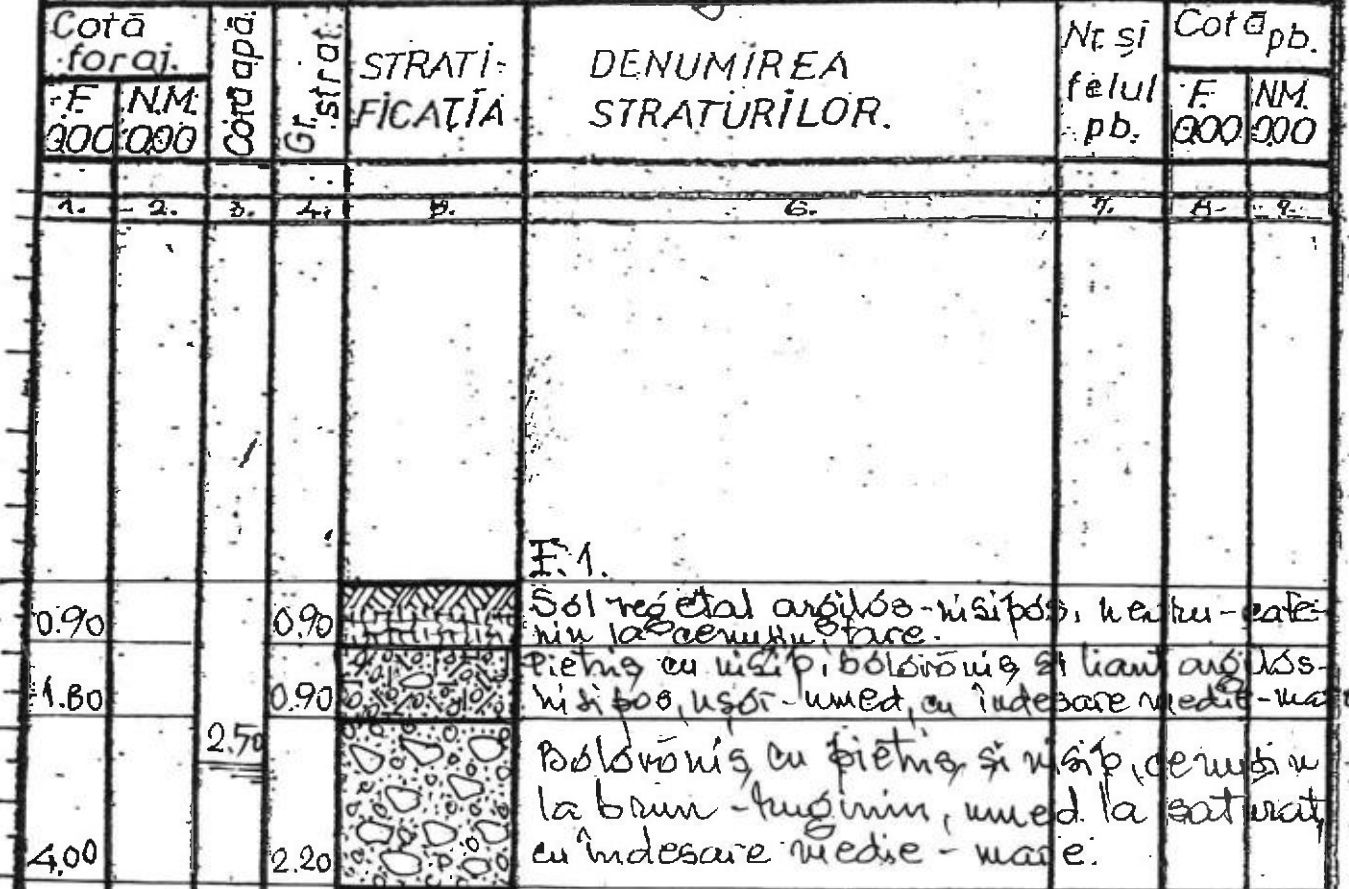 Cotă foraj.
Cotă apă.
Gr. strat.
STRATI-
FICAȚIA
DENUMIREA
STRATURILOR.
Nr. și
felul
pb.
Cotă pb.
F. 0.00
N.M. 0.00
F. 0.00
N.M. 0.00
1. 2. 3. 4. 5. 6. 7. 8. 9.
F.1.
0.90 0.90 Sol vegetal argilos-nisipos,
la cenușiu, tare.
1.80 0.90 Pietriș cu nisip, bolovăniș și liant argilos-
nisipos, ușor-umed, cu îndesare medie-mare
2.50
Bolovăniș cu pietriș și nisip, cenușiu
la brun-ruginiu, umed la saturat,
4.00 2.20 cu îndesare medie-mare.